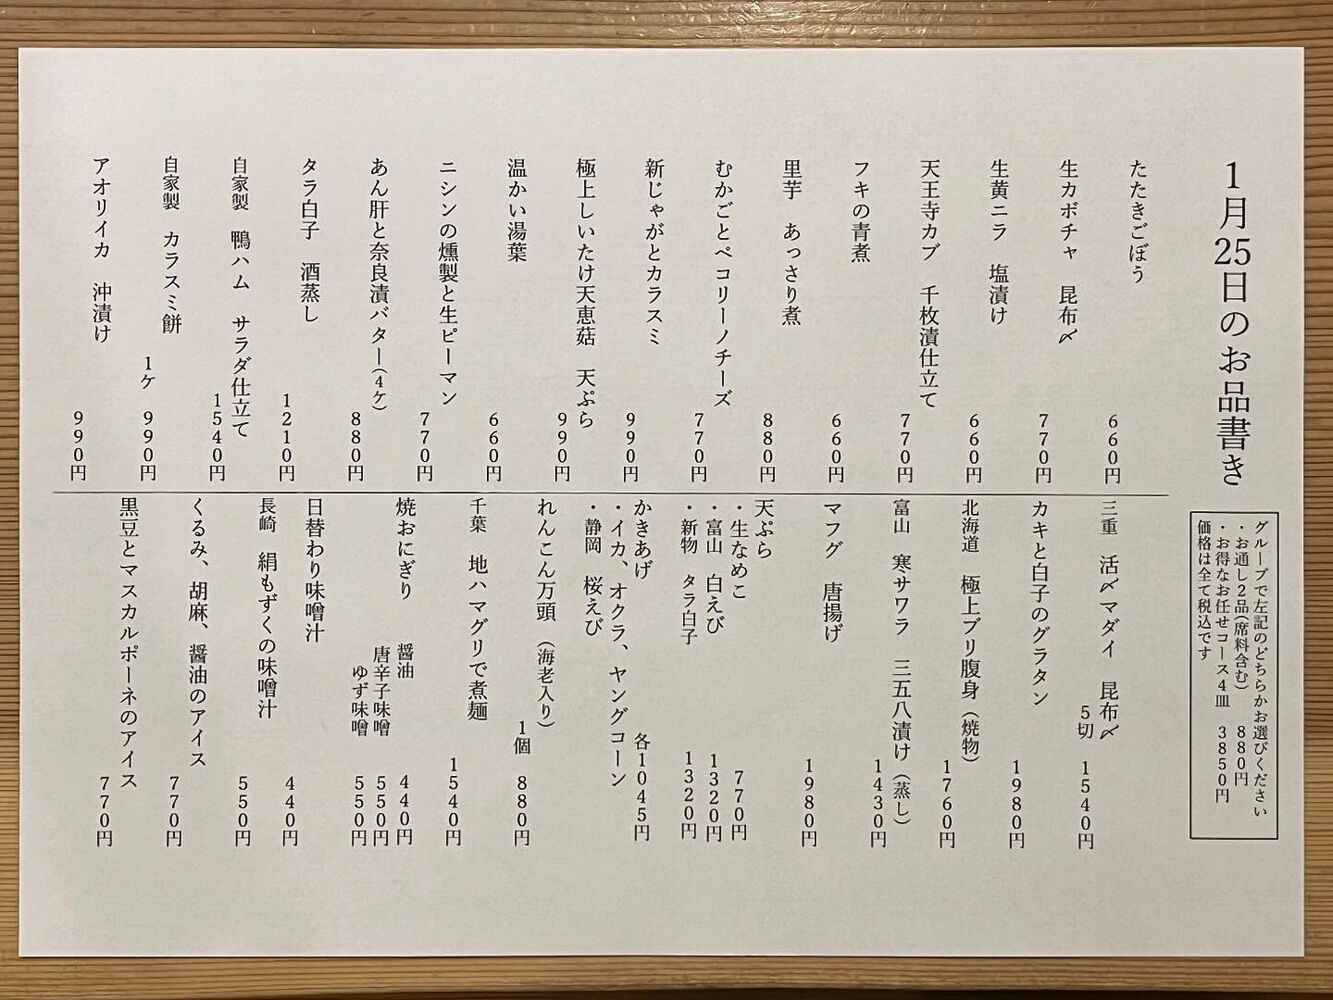 1月25日のお品書き
グループで左記のどちらかお選びください
・お通し2品(席料含む) 880円
・お得なお任せコース4皿 3850円
価格は全て税込です
たたきごぼう 660円
生カボチャ 昆布〆 770円
生黄ニラ 塩漬け 660円
天王寺カブ 千枚漬仕立て 770円
フキの青煮 660円
里芋 あっさり煮 880円
むかごとペコリーノチーズ 770円
新じゃがとカラスミ 990円
極上しいたけ天恵菇 天ぷら 990円
温かい湯葉 660円
ニシンの燻製と生ピーマン 770円
あん肝と奈良漬バター(4ケ) 880円
タラ白子 酒蒸し 1210円
自家製 鴨ハム サラダ仕立て 1540円
自家製 カラスミ餅 1ケ 990円
アオリイカ 沖漬け 990円
三重 活〆マダイ 昆布〆 5切 1540円
カキと白子のグラタン 1980円
北海道 極上ブリ腹身(焼物) 1760円
富山 寒サワラ 三五八漬け(蒸し) 1430円
マフグ 唐揚げ 1980円
天ぷら
・生なめこ 770円
・富山 白えび 1320円
・新物 タラ白子 1320円
かきあげ 各1045円
・イカ、オクラ、ヤングコーン
・静岡 桜えび
れんこん万頭 (海老入り) 1個 880円
千葉 地ハマグリで煮麺 1540円
焼おにぎり 醤油 440円
唐辛子味噌 550円
ゆず味噌 550円
日替わり味噌汁 440円
長崎 絹もずくの味噌汁 550円
くるみ、胡麻、醤油のアイス 770円
黒豆とマスカルポーネのアイス 770円